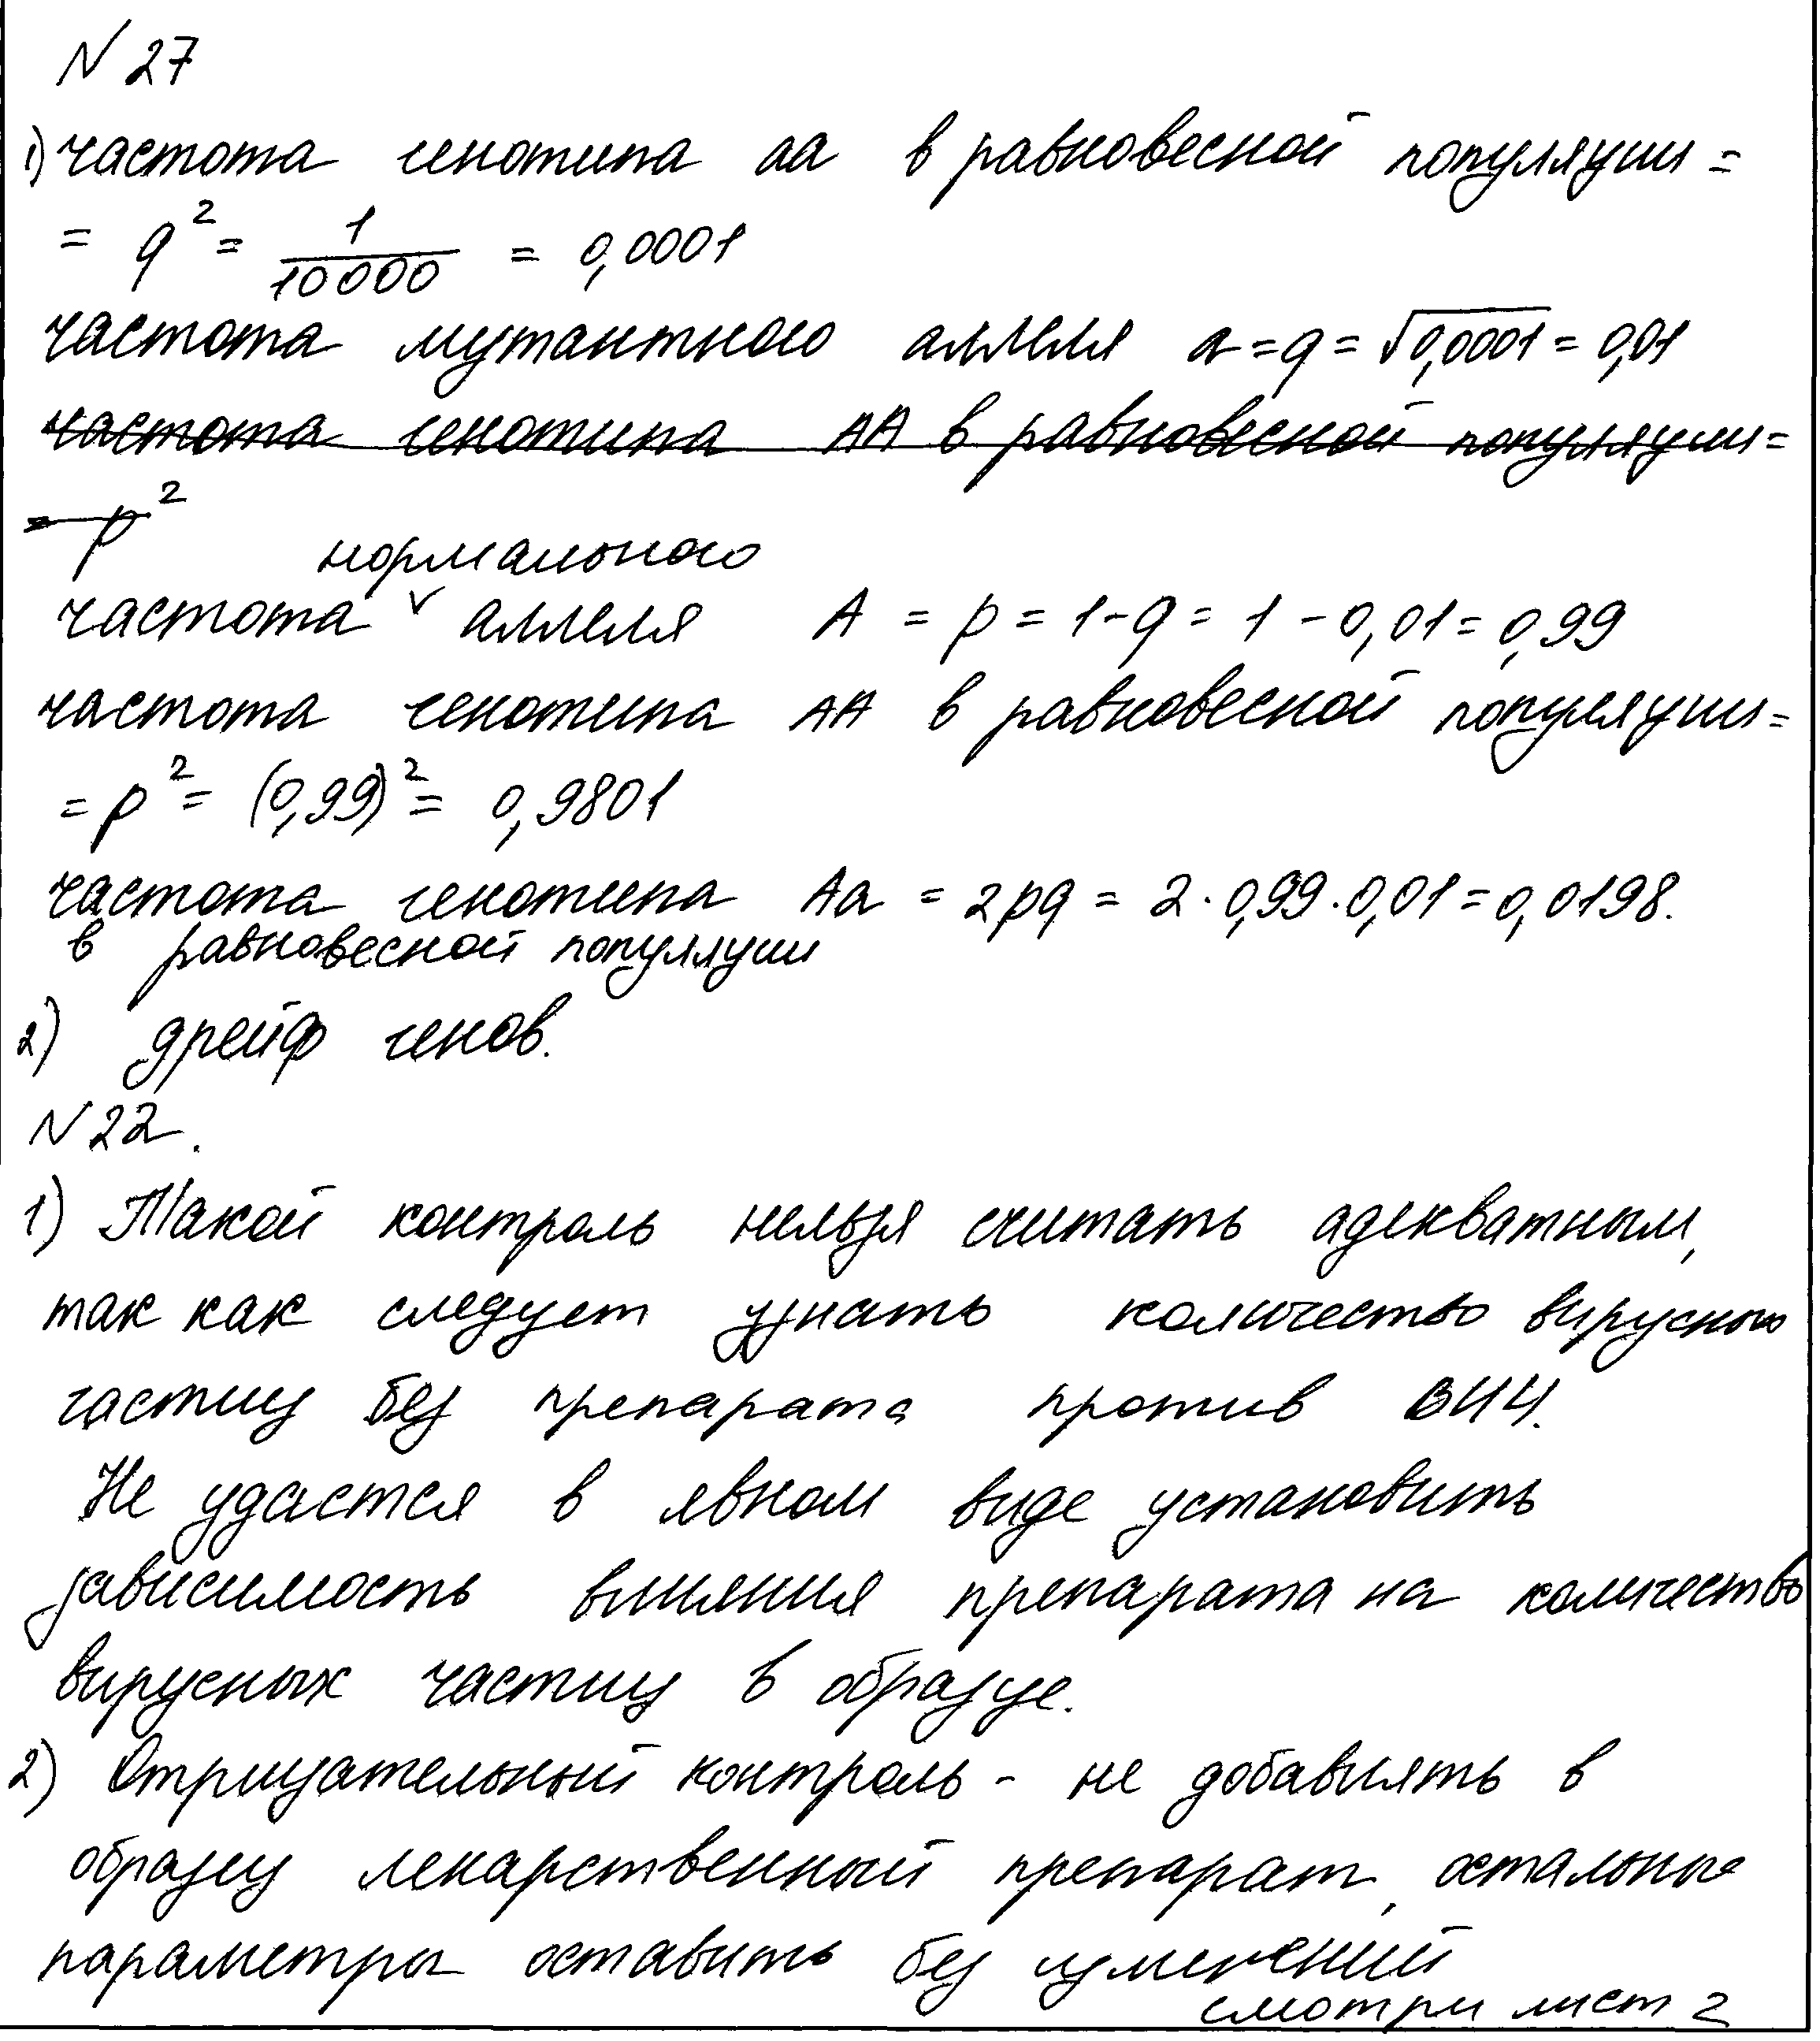 N 27
1) частота генотипа аа в равновесной популяции =
= q² = 1/10000 = 0,0001
частота мутантного аллеля a = q = √0,0001 = 0,01
частота генотипа АА в равновесной популяции =
= p²
нормального
частота ˅ аллеля А = p = 1-q = 1 - 0,01 = 0,99
частота генотипа АА в равновесной популяции =
= p² = (0,99)² = 0,9801
частота генотипа Аа = 2pq = 2·0,99·0,01 = 0,0198.
в равновесной популяции
2) дрейф генов.
N 22.
1) Такой контроль нельзя считать адекватным,
так как следует узнать количество вирусных
частиц без препарата против ВИЧ.
Не удастся в явном виде установить
зависимость влияния препарата на количество
вирусных частиц в образце.
2) Отрицательный контроль - не добавлять в
образец лекарственный препарат, остальные
параметры оставить без изменений
смотри лист 2